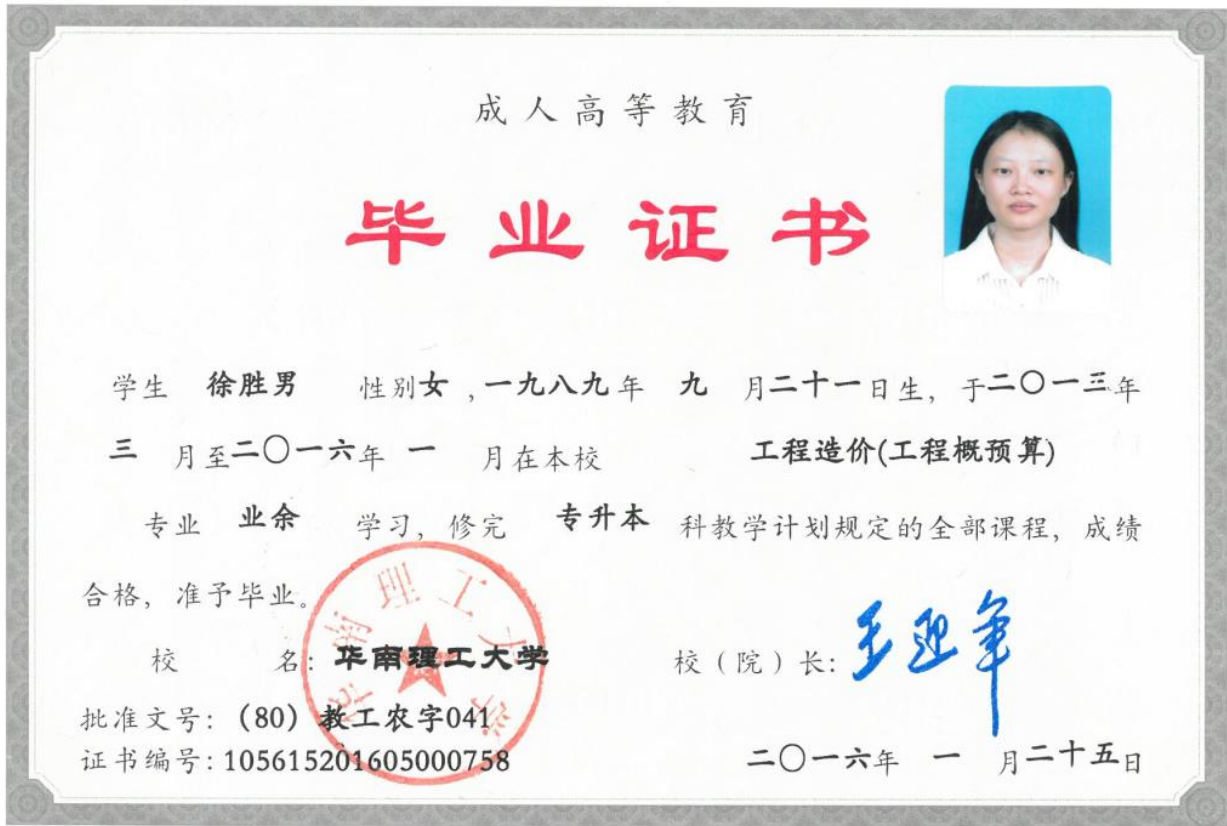 成人高等教育
毕业证书
学生 徐胜男 性别女,一九八九年 九 月二十一日生，于二〇一三年
三 月至二〇一六年 一 月在本校 工程造价(工程概预算)
专业 业余 学习，修完 专升本 科教学计划规定的全部课程，成绩
合格，准予毕业。
华南理工大学
校 名：华南理工大学
校（院）长：王迎军
批准文号：（80）教工农字041
证书编号：105615201605000758
二〇一六年 一 月二十五日